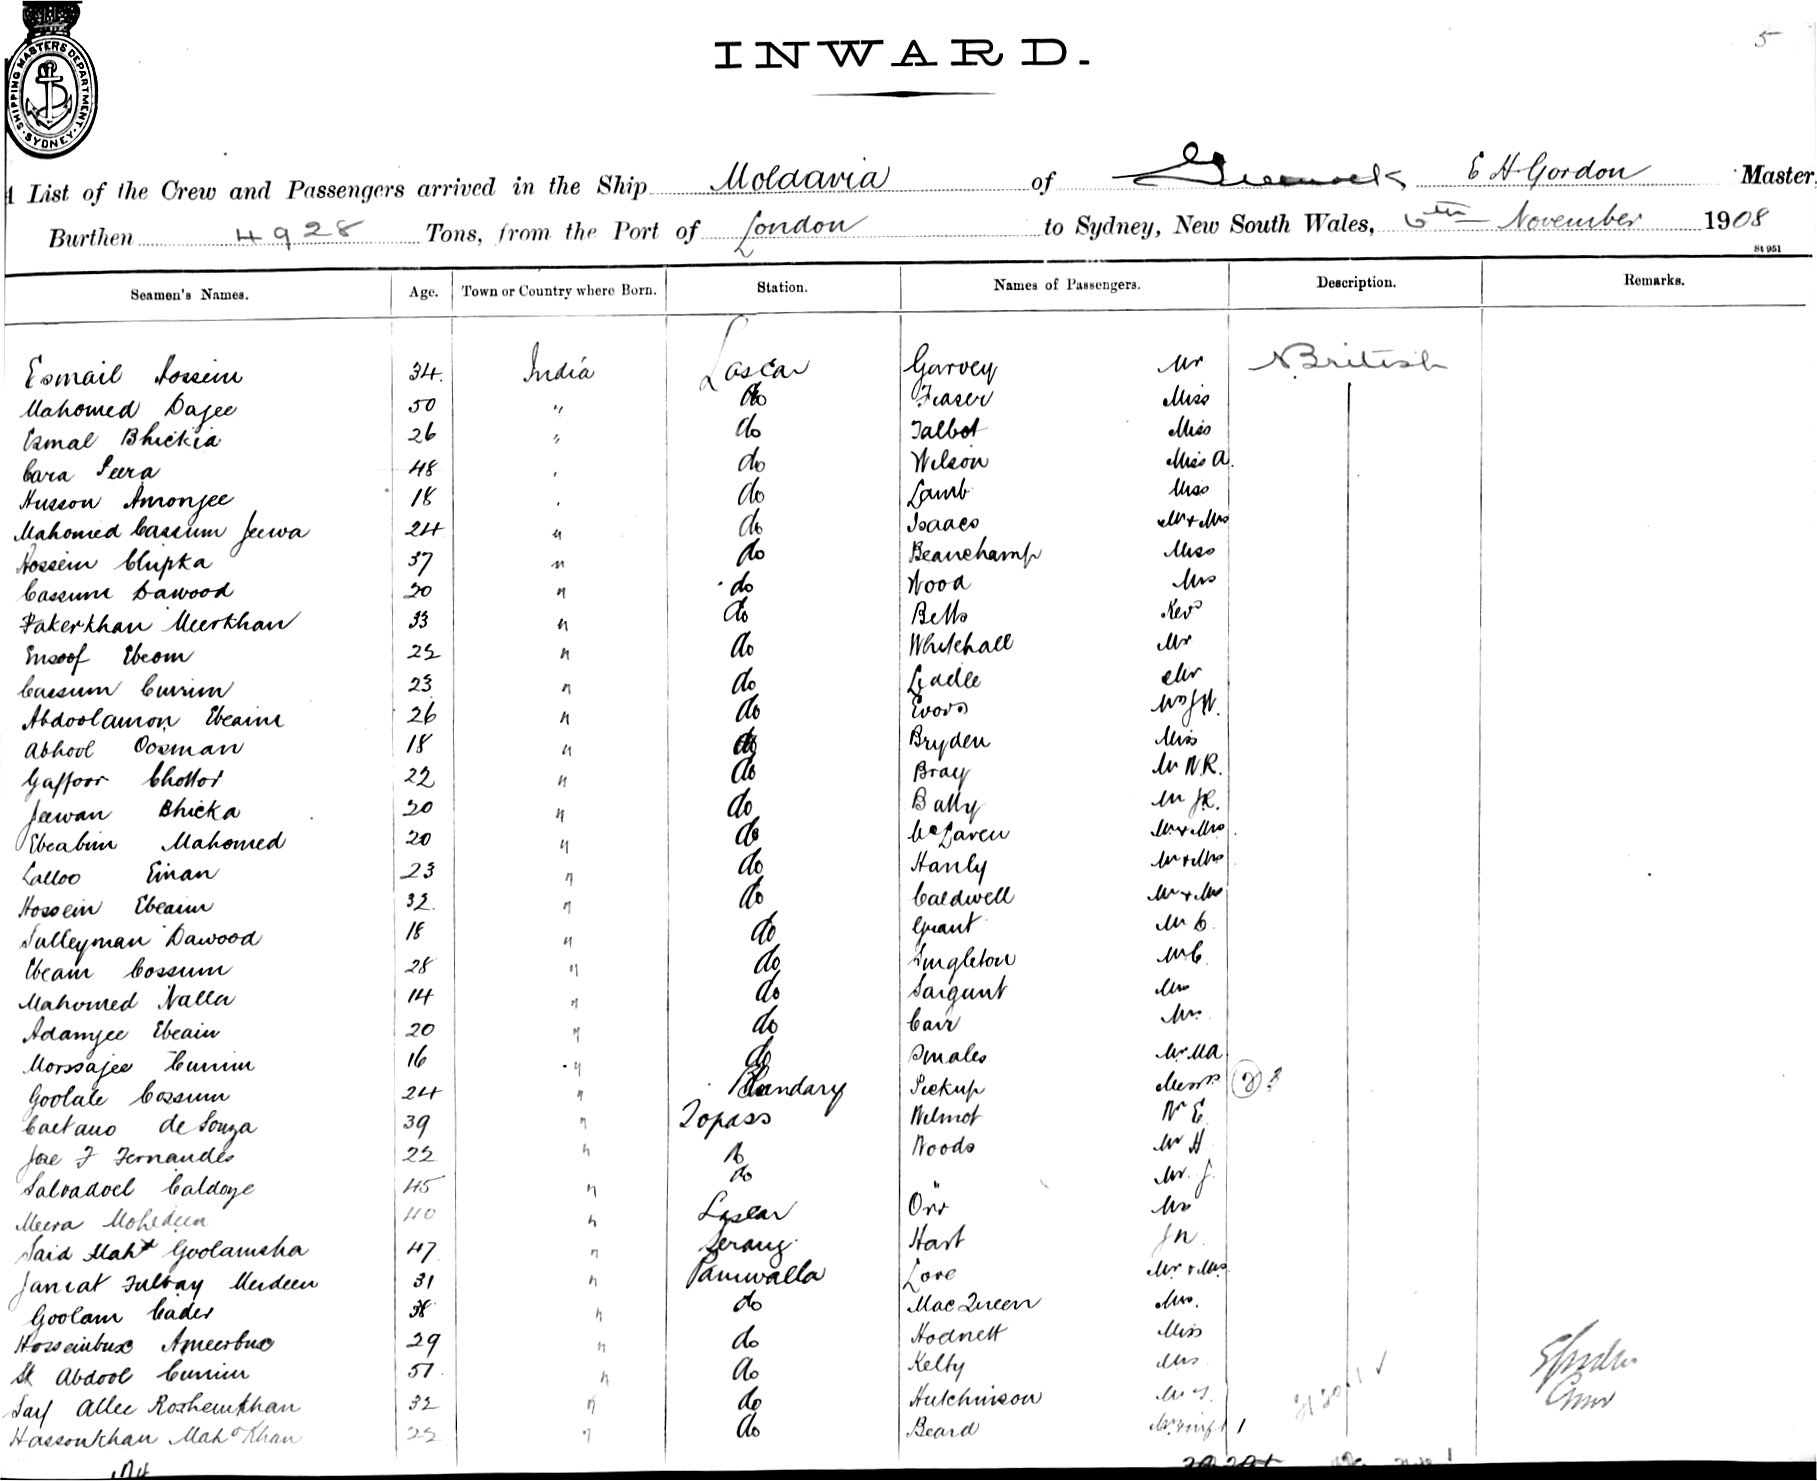 5
INWARD.
SHIPPING MASTERS DEPARTMENT · SYDNEY ·
List of the Crew and Passengers arrived in the Ship Moldavia of Greenock E H Gordon Master,
Burthen 4928 Tons, from the Port of London to Sydney, New South Wales, 6th November 1908
St 951
Seamen's Names. Age. Town or Country where Born. Station. Names of Passengers. Description. Remarks.
Esmail Hossein 34 India Lascar Garvey Mr British
Mahomed Dajee 50 " do Fraser Miss
Esmal Bhickia 26 " do Talbot Miss
Cara Peera 48 do Wilson Miss A.
Husson Amonjee 18 do Lamb Miss
Mahomed Cassum Jeewa 24 " do Isaacs Mr & Mrs
Hossein Chipka 37 " do Beauchamp Miss
Cassum Dawood 20 " do Wood Mrs
Fakerkhan Meerkhan 33 " do Betts Revd
Ensoof Ebeom 22 " do Whitehall Mr
Cassum Currim 23 " do Liddle Mr
Abdoolamon Ebeaim 26 " do Evors
Abhool Oosman 18 " do Bryden Miss
Gaffoor Chottor 22 " do Bray Mr N.R.
Jeewan Bhicka 20 " do Batty Mr J.R.
Ebeabim Mahomed 20 " do McLaren Mr & Mrs
Lalloo Einan 23 " do Hanly Mr & Mrs
Hossein Ebeaim 32 " do Caldwell Mr & Mrs
Sulleyman Dawood 18 " do Grant Mr D.
Ebeaim Cossum 28 " do Singleton Mr C.
Mahomed Nalla 14 " do Sargunt Mrs
Adamjee Ebeaim 20 " do Carr Mrs
Morssajee Currim 16 " do Smales Mr M A
Goolale Cossum 24 " Bhandary Pickup 2
Caetano de Souza 39 " Topass Wilmot Mr E
Jose F Fernandes 22 " do Woods Mr H
Salvadoel Caldoze 45 " do " Mr. J.
Meera Mohedeen 40 " Lascar Orr Mrs
Said Mahd Goolamsha 47 " Serang Hart J N
Janeat Fulbay Merdeen 31 " Paniwalla Love Mr & Mrs
Goolam Cader 38 " do MacQueen Mrs.
Hosseinbux Ameerbux 29 " do Hodnett Miss
Sk Abdool Currim 51 " do Kelty Mrs
Sarf Allee Roshemkhan 32 " do Hutchinson
Hassonkhan Mahd Khan 22 " do Beard